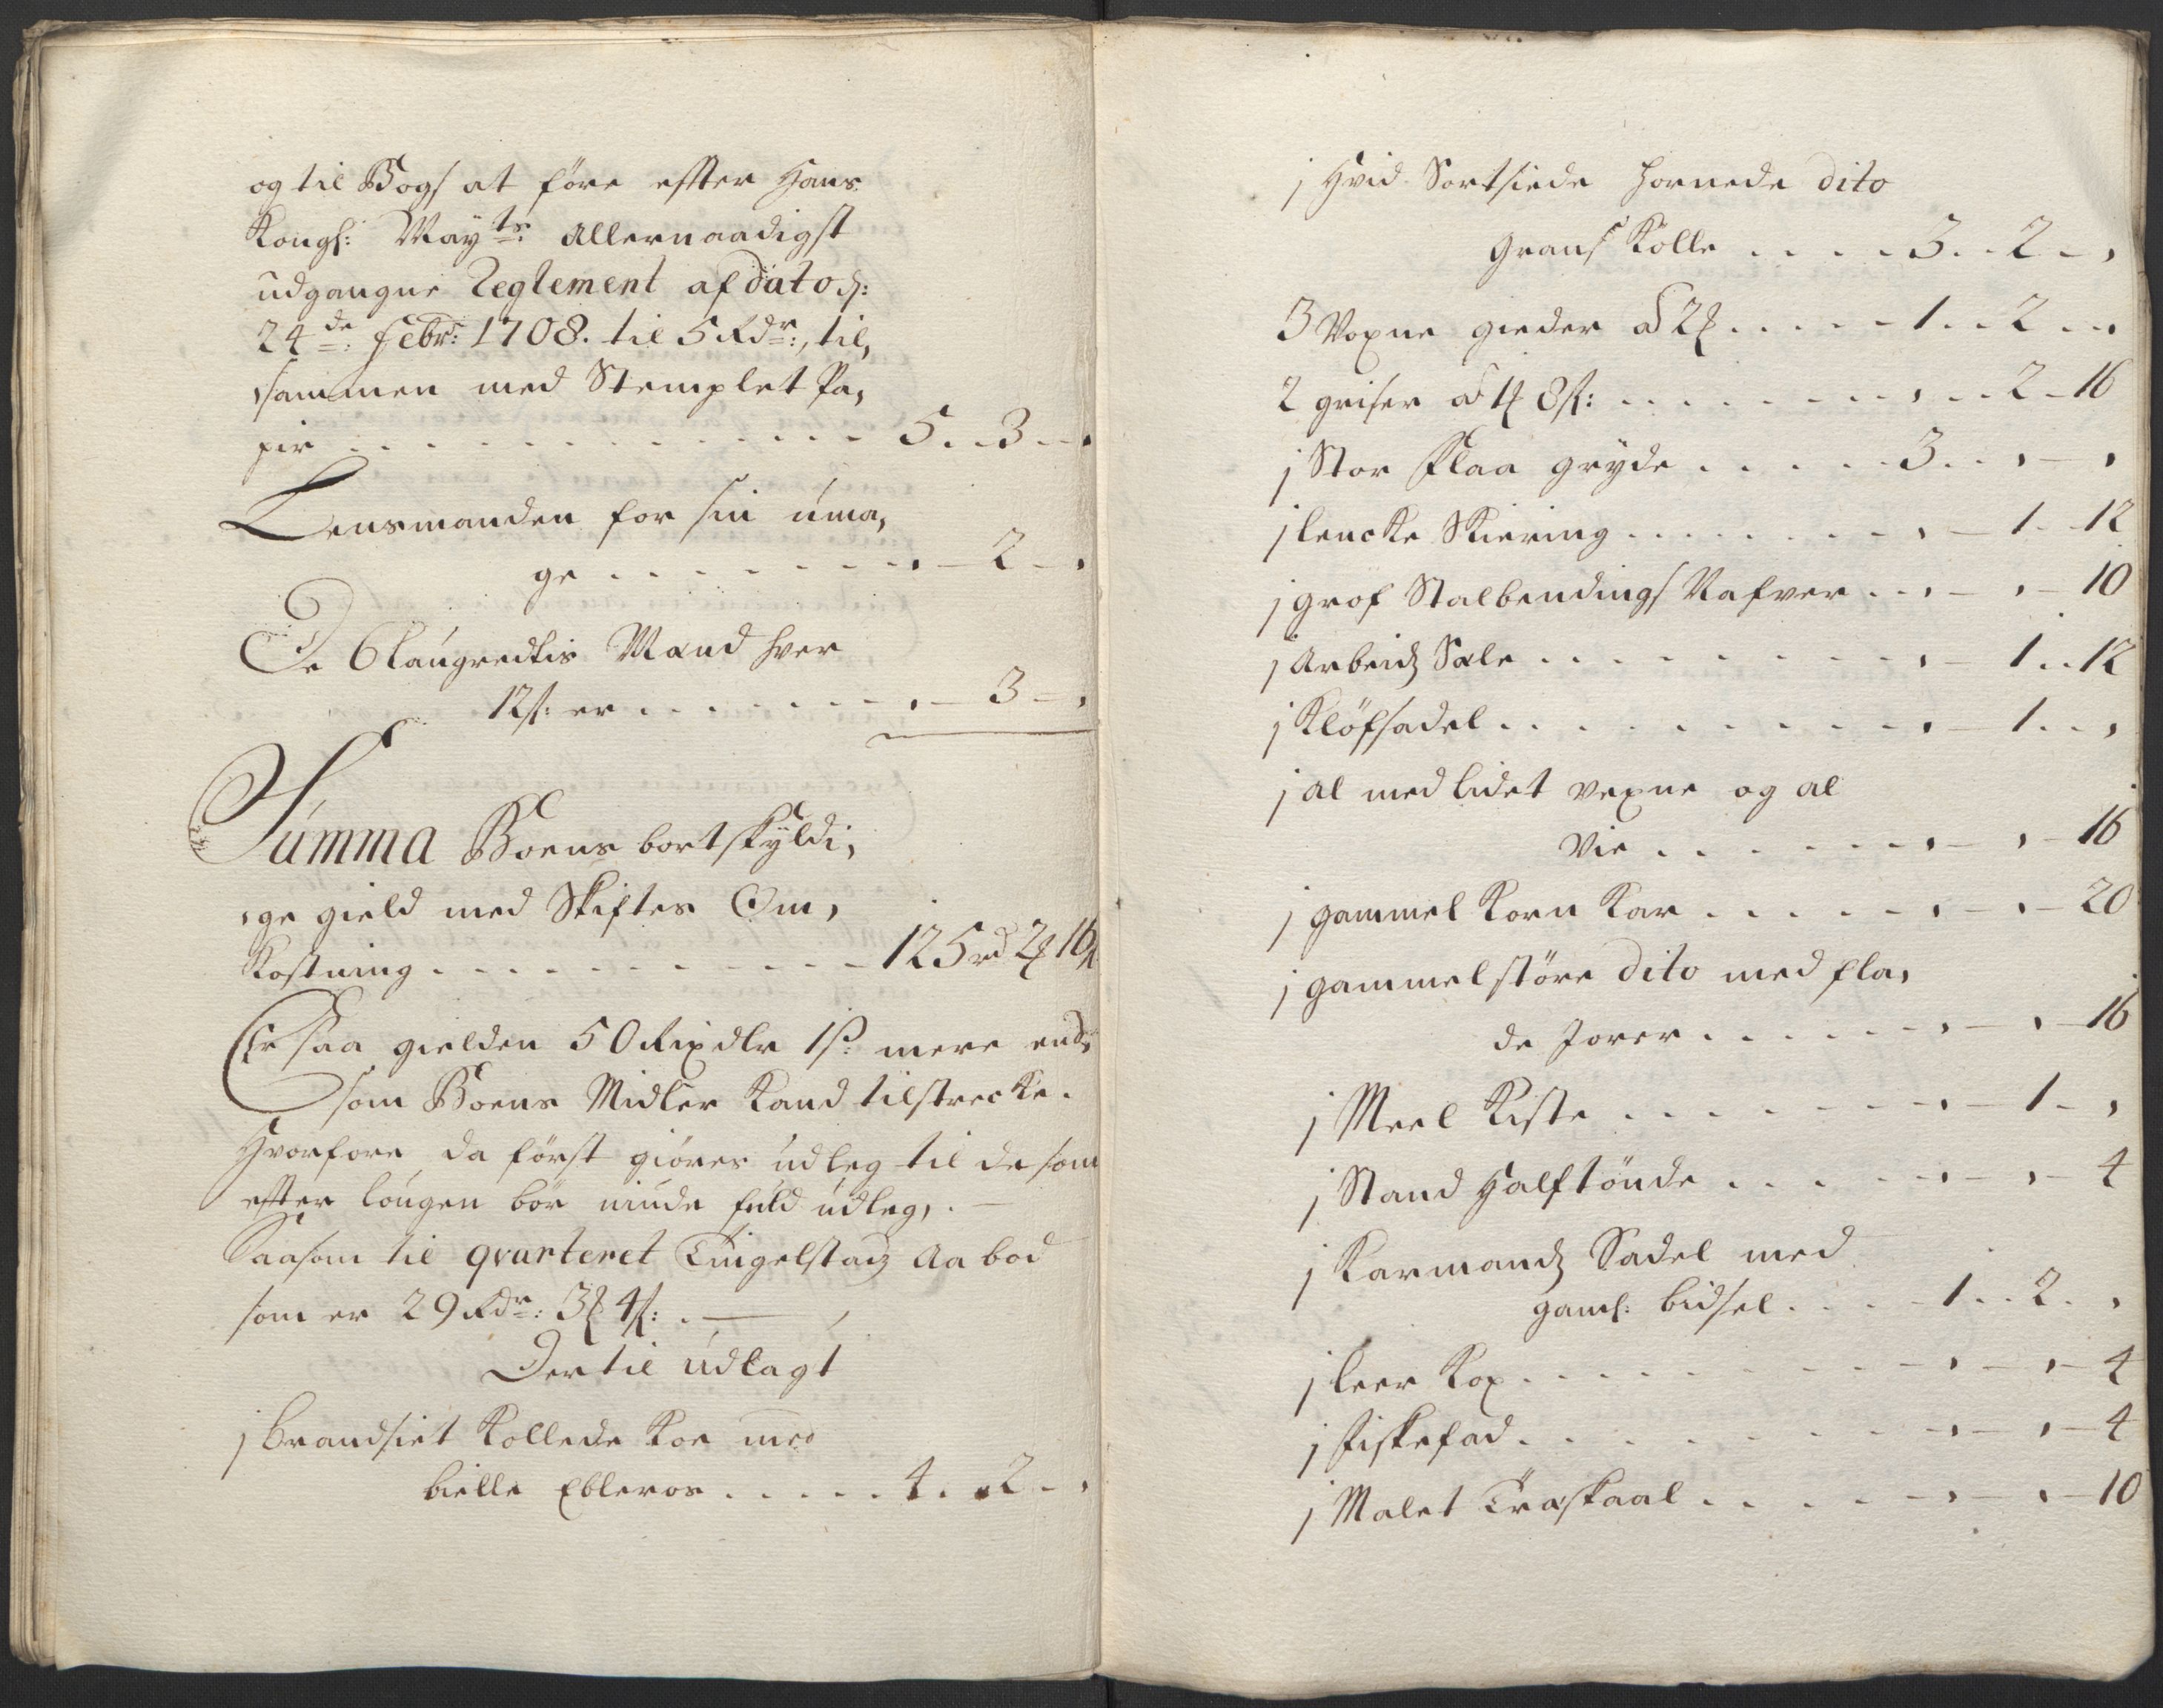 og til Bogs at före efter Hans
Kongl: Mayts: Allernaadigst
udgangne Reglement af dato d:
24de: Febr: 1708. til 5 Rdr:, til,
sammen med Stemplet Pa,
pir . . . . . . . . . . . . 5 . . 3 . . ,
Lensmanden for sin uma,
ge . . . . . . . , – 2 – ,
De 6 laugrettis Mænd hver
12 s: er . . . . . . . , – 3 – ,
Summa Boens bortskyldi,
ge gield med Skiftes Om,
kostning . . . . . . . . . . 125 rd 2 16
Er saa gielden 50 Rixdlr 1 s: mere end,
som Boens Midler kand tilstrecke.
Hvorfore da först giöres udleg til de som
efter lougen bör niude fuld udleg, . –
Saasom til qvarteret Tingelstad Aabod
som er 29 Rdr: 3 4 s: . –
Der til udlagt
1 brandsiet kollede koe med
bielle Ebleros . . . . . 4 . . 2 . . ,
1 Hvid Sortsiede hornede dito
Grans kolle . . . . 3 . . 2 – ,
3 Voxne gieder á 2 . . . . . 1 . . 2 . . ,
2 griser á 1 8 s: . . . . . . . . , . . 2 – 16
1 Stor Flaa gryde . . . . . 3 . . , – ,
1 lencke Skiering . . . . . . . . , – 1 . . 12
1 grof Stalbendings Nafver . . , – , – 10
1 Arbeids Sæle . . . . . . . . . , – 1 . . 12
1 Klöfsadel . . . . . . . . . . , – 1 . . ,
1 al med lidet vexne og al
Vie . . . . . . . , – , – 16
1 gammel korn kar . . . . . , – , – 20
1 gammel större dito med fla,
de Jorer . . . . . . , – , – 16
1 Meel kiste . . . . . . . . , – 1 – ,
1 Stand Halftönde . . . . . , – , – 4
1 Karmands Sadel med
gaml: bidsel . . . . 1 . . 2 . . ,
1 leer kop . . . . . . . . . , – , – 4
1 fiskefad . . . . . . . . . , – , – 4
1 Malet Træskaal . . . . . , – , – 10